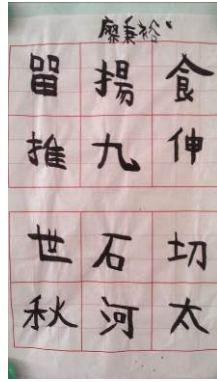 廖秉裕
留揚食
推九伸
世石切
秋河太